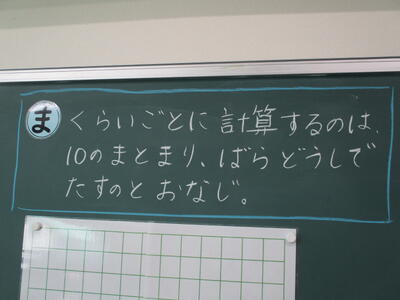 ま くらいごとに計算するのは、
10のまとまり、ばらどうしで
たすのとおなじ。